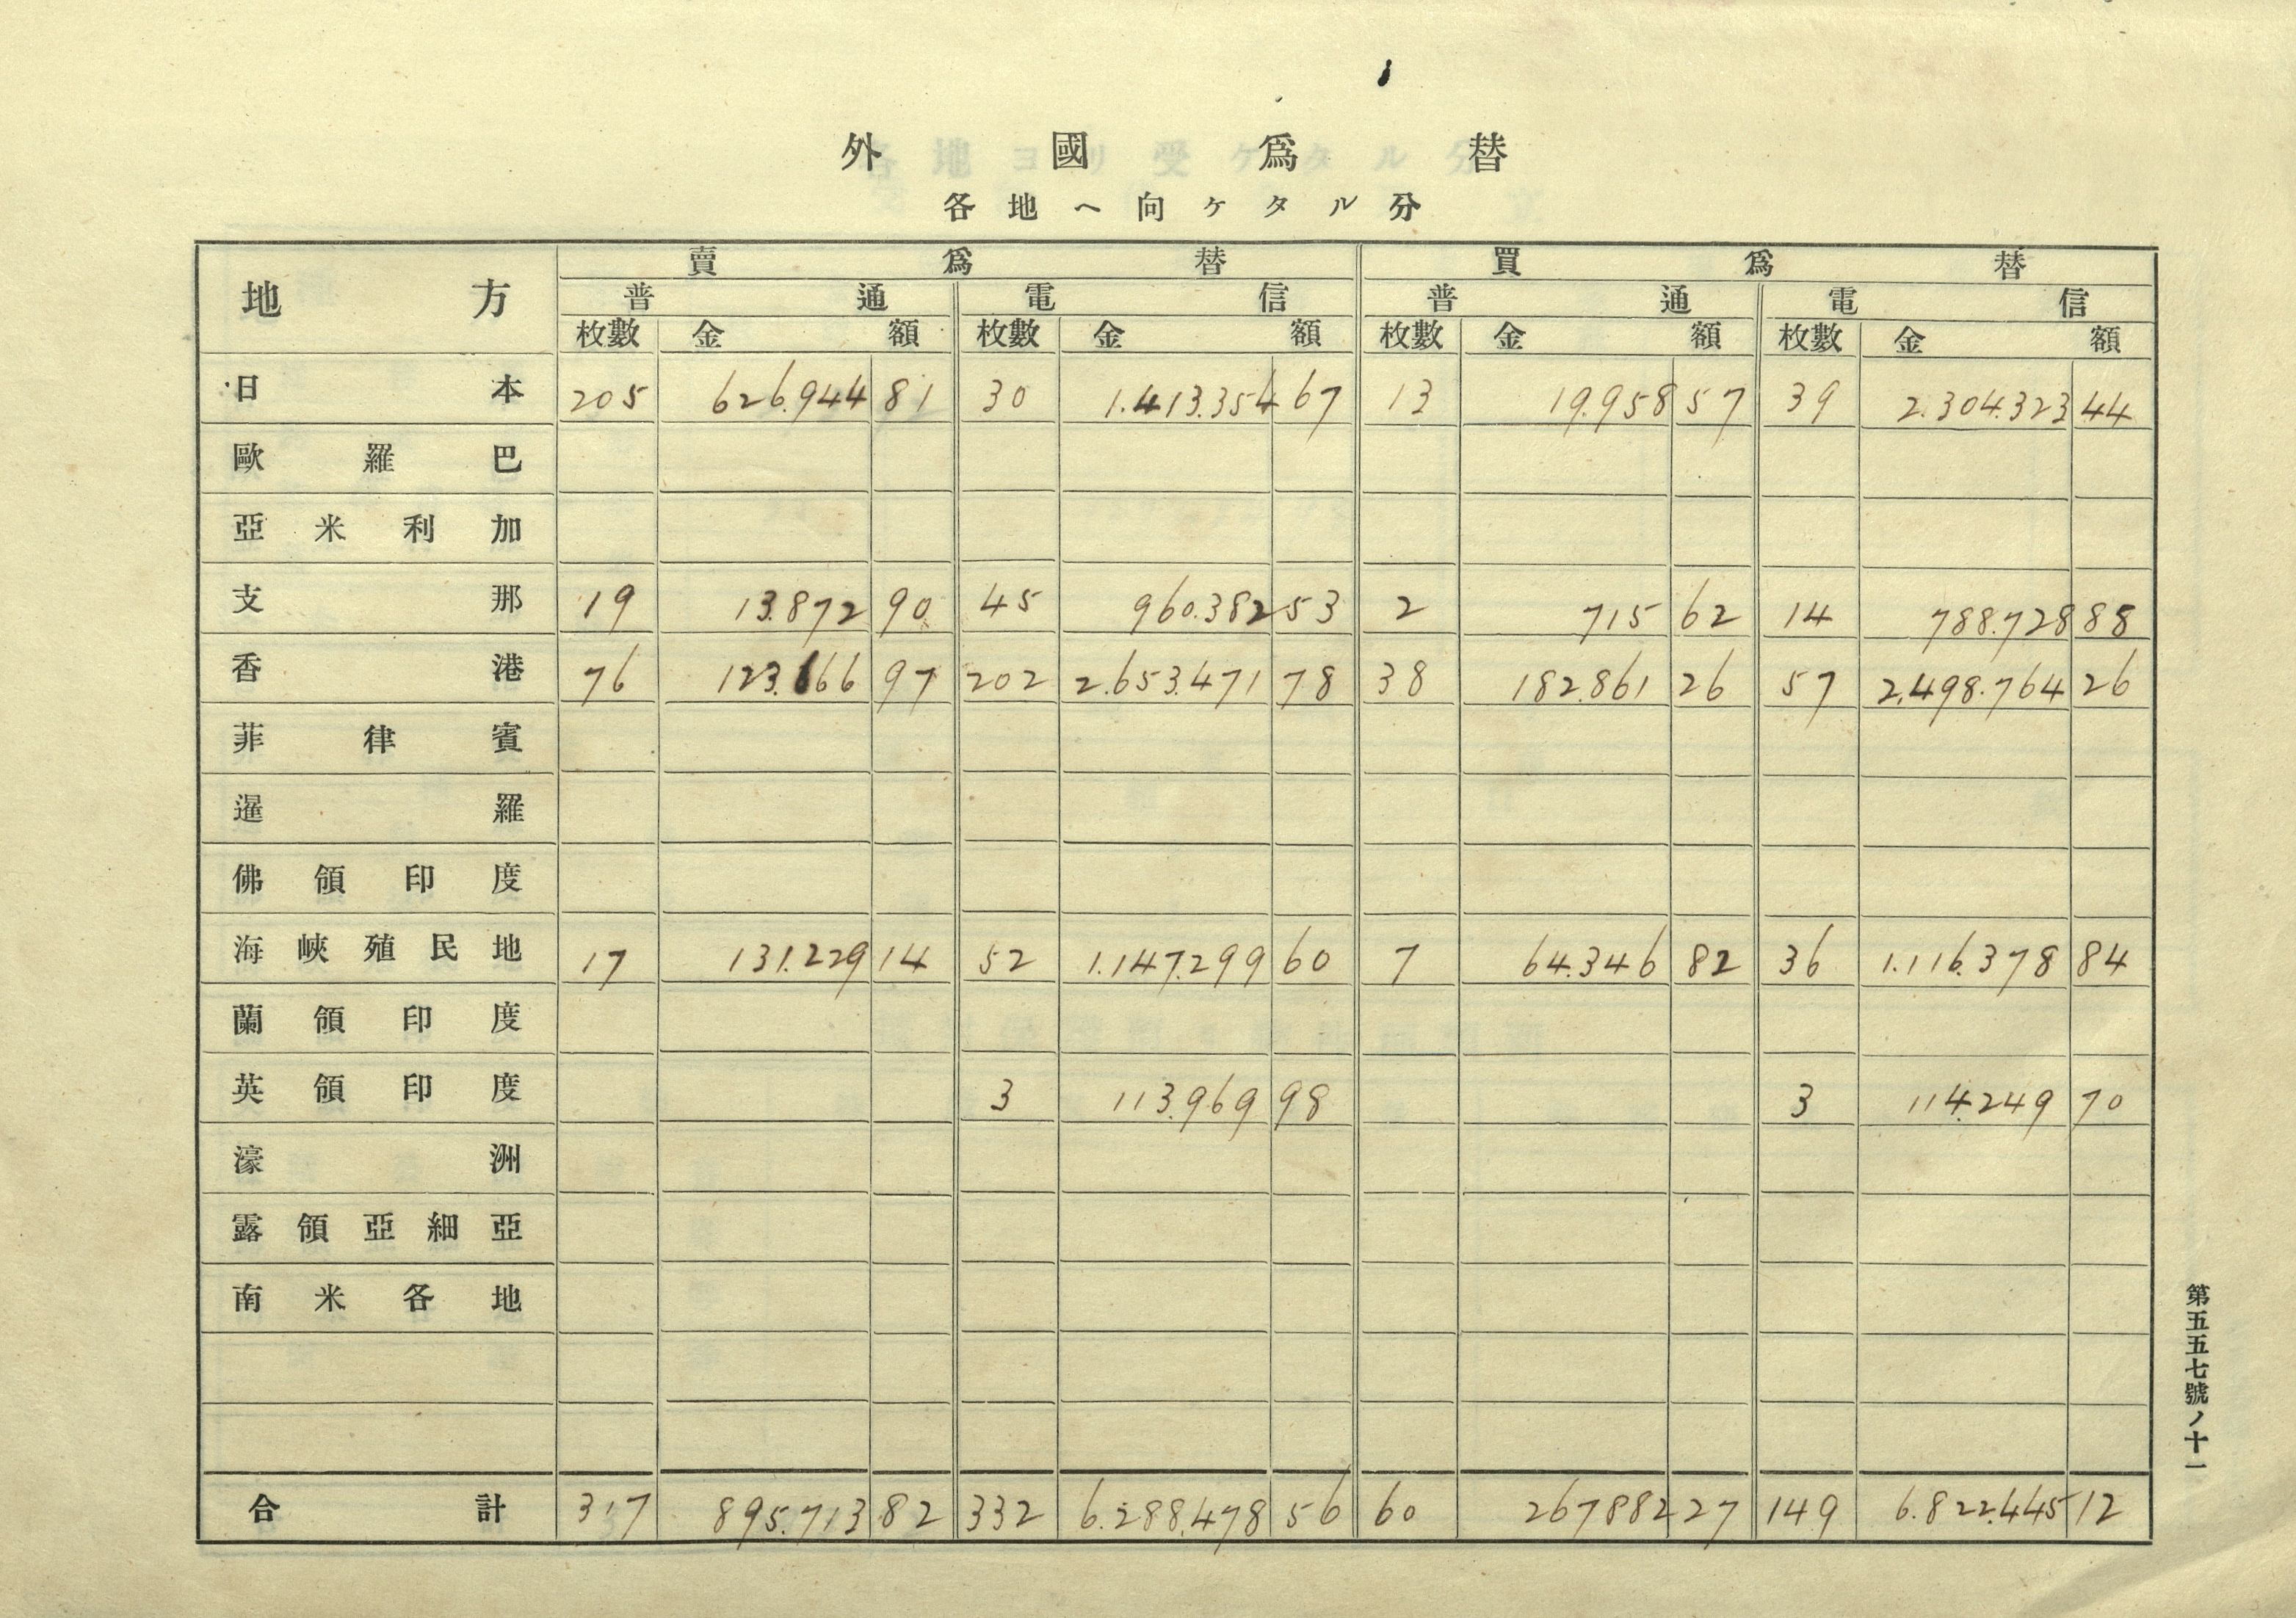 外國爲替
各地ヘ向ケタル分
地方 賣爲替 買爲替
普通 電信 普通 電信
枚數 金額 枚數 金額 枚數 金額 枚數 金額
日本 205 626.944 81 30 1.413.354 67 13 19.958 57 39 2.304.323 44
歐羅巴
亞米利加
支那 19 13.872 90 45 960.382 53 2 715 62 14 788.728 88
香港 76 123.666 97 202 2.653.471 78 38 182.861 26 57 2.498.764 26
菲律賓
暹羅
佛領印度
海峽殖民地 17 131.229 14 52 1.147.299 60 7 64.346 82 36 1.116.378 84
蘭領印度
英領印度 3 113.969 98 3 114.249 70
濠洲
露領亞細亞
南米各地
合計 317 895.713 82 332 6.288.478 56 60 267882 27 149 6.822.445 12
第五五七號ノ十一